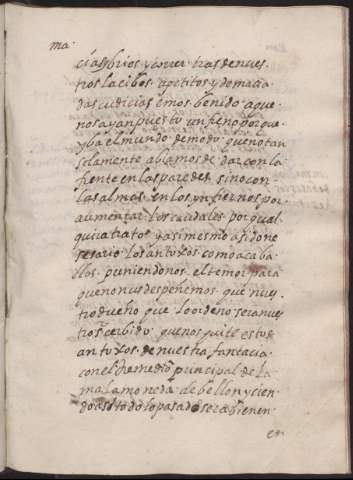 ma.
cíos brios y correr tras de nues
tros lacibos apetitos y demacia
das cudicias emos benido a que
nos ayan puesto un freno porque
yba el mundo de modo que no tan
solamente abiamos de dar con la
frente en las paredes sino con
las almas en los ynfiernos por
aumentar los caudales por qual
quier a tratos y asimesmo a sido ne
sesario los antoxos como a caba
llos puniendonos el temor para
que no nos despeñemos que nues
tro dueño que lo ordeno sera nues
tro
que nos quite estos
antoxos de nuestra fantacia
con el Remedio principal de la
mala moneda de bellon y cien
do asi todo lo pasado sera bienen